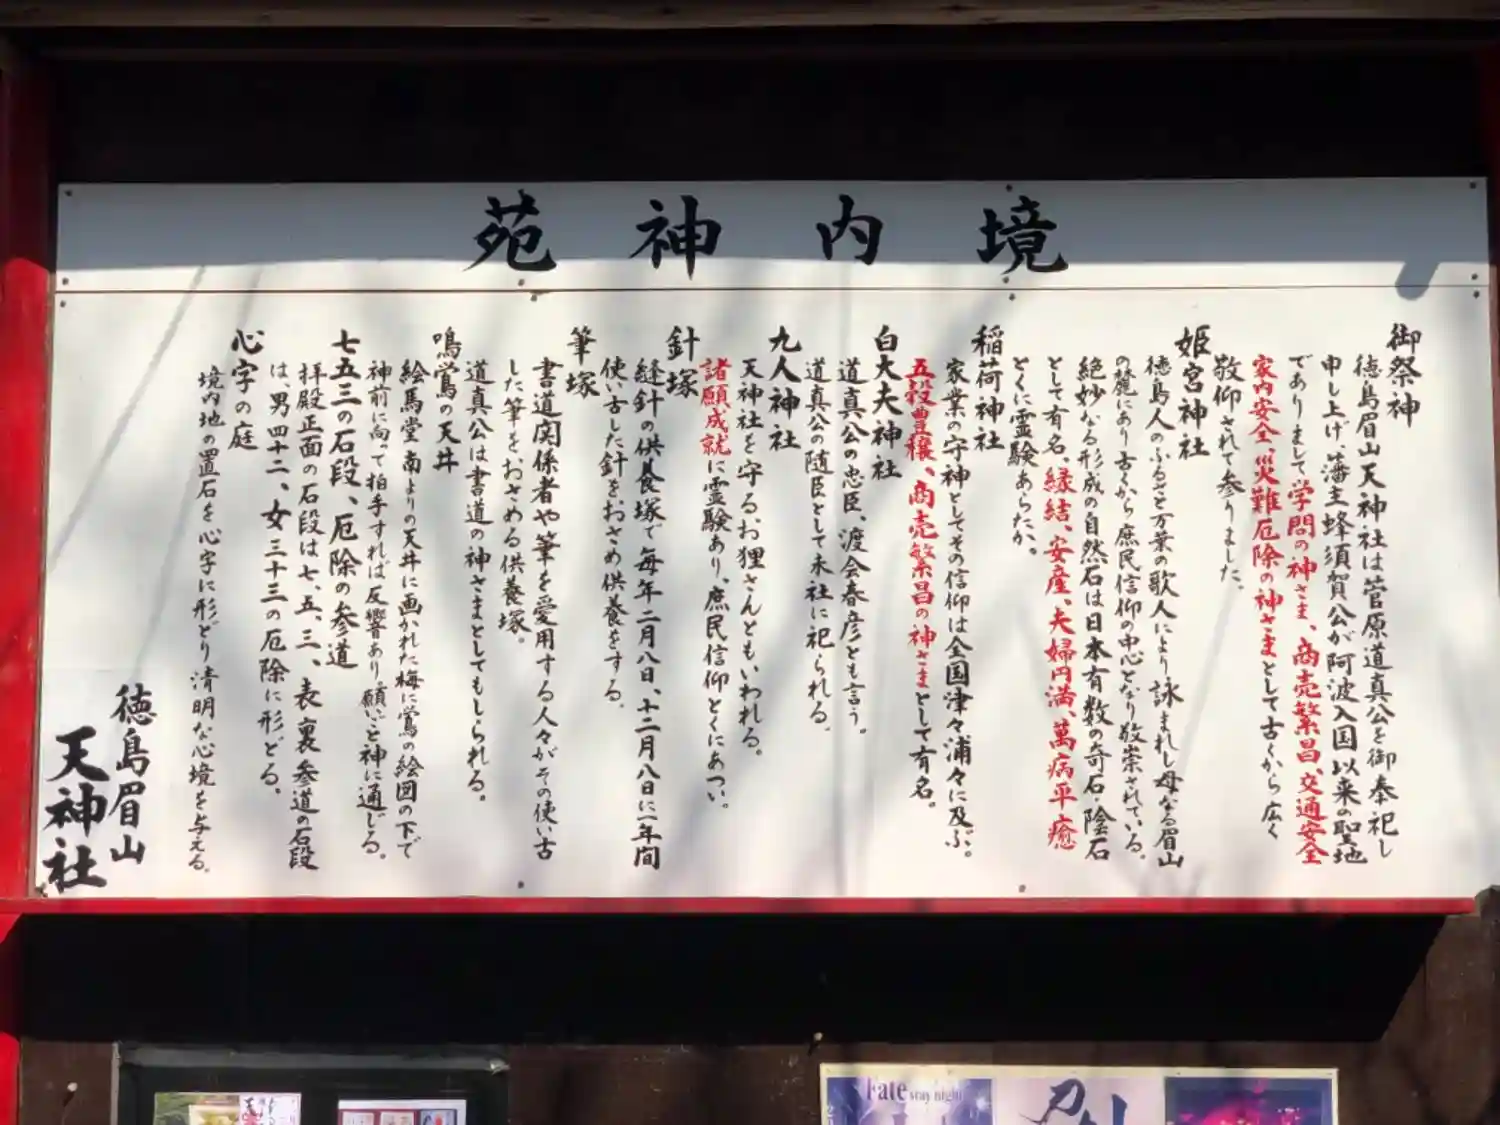 境内神苑
御祭神
徳島眉山天神社は菅原道真公を御奉祀し
申し上げ、藩主蜂須賀公が阿波入国以来の聖地
でありまして学問の神さま、商売繁昌、交通安全
家内安全、災難厄除の神さまとして古くから広く
敬仰されて参りました。
姫宮神社
徳島人のふるさと万葉の歌人により詠まれし母なる眉山
の麓にあり古くから庶民信仰の中心となり敬崇されている。
絶妙なる形成の自然石は日本有数の奇石・陰石
として有名。縁結、安産、夫婦円満、萬病平癒
とくに霊験あらたか。
稲荷神社
家業の守神としてその信仰は全国津々浦々に及ぶ。
五穀豊穣、商売繁昌の神さまとして有名。
白太夫神社
道真公の忠臣、渡会春彦とも言う。
道真公の随臣として末社に祀られる。
九人神社
天神社を守るお狸さんともいわれる。
諸願成就に霊験あり、庶民信仰とくにあつい。
針塚
縫針の供養塚で毎年二月八日、十二月八日に一年間
使い古した針をおさめ供養をする。
筆塚
書道関係者や筆を愛用する人々がその使い古
した筆をおさめる供養塚。
道真公は書道の神さまとしてもしられる。
鳴鴬の天井
絵馬堂南よりの天井に画かれた梅に鴬の絵図の下で
神前に向って拍手すれば反響あり、願いごと神に通じる。
七五三の石段、厄除の参道
拝殿正面の石段は七、五、三、表裏参道の石段
は、男四十二、女三十三の厄除に形どる。
心字の庭
境内地の置石を心字に形どり清明な心境を与える。
徳島眉山
天神社
Fate stay night